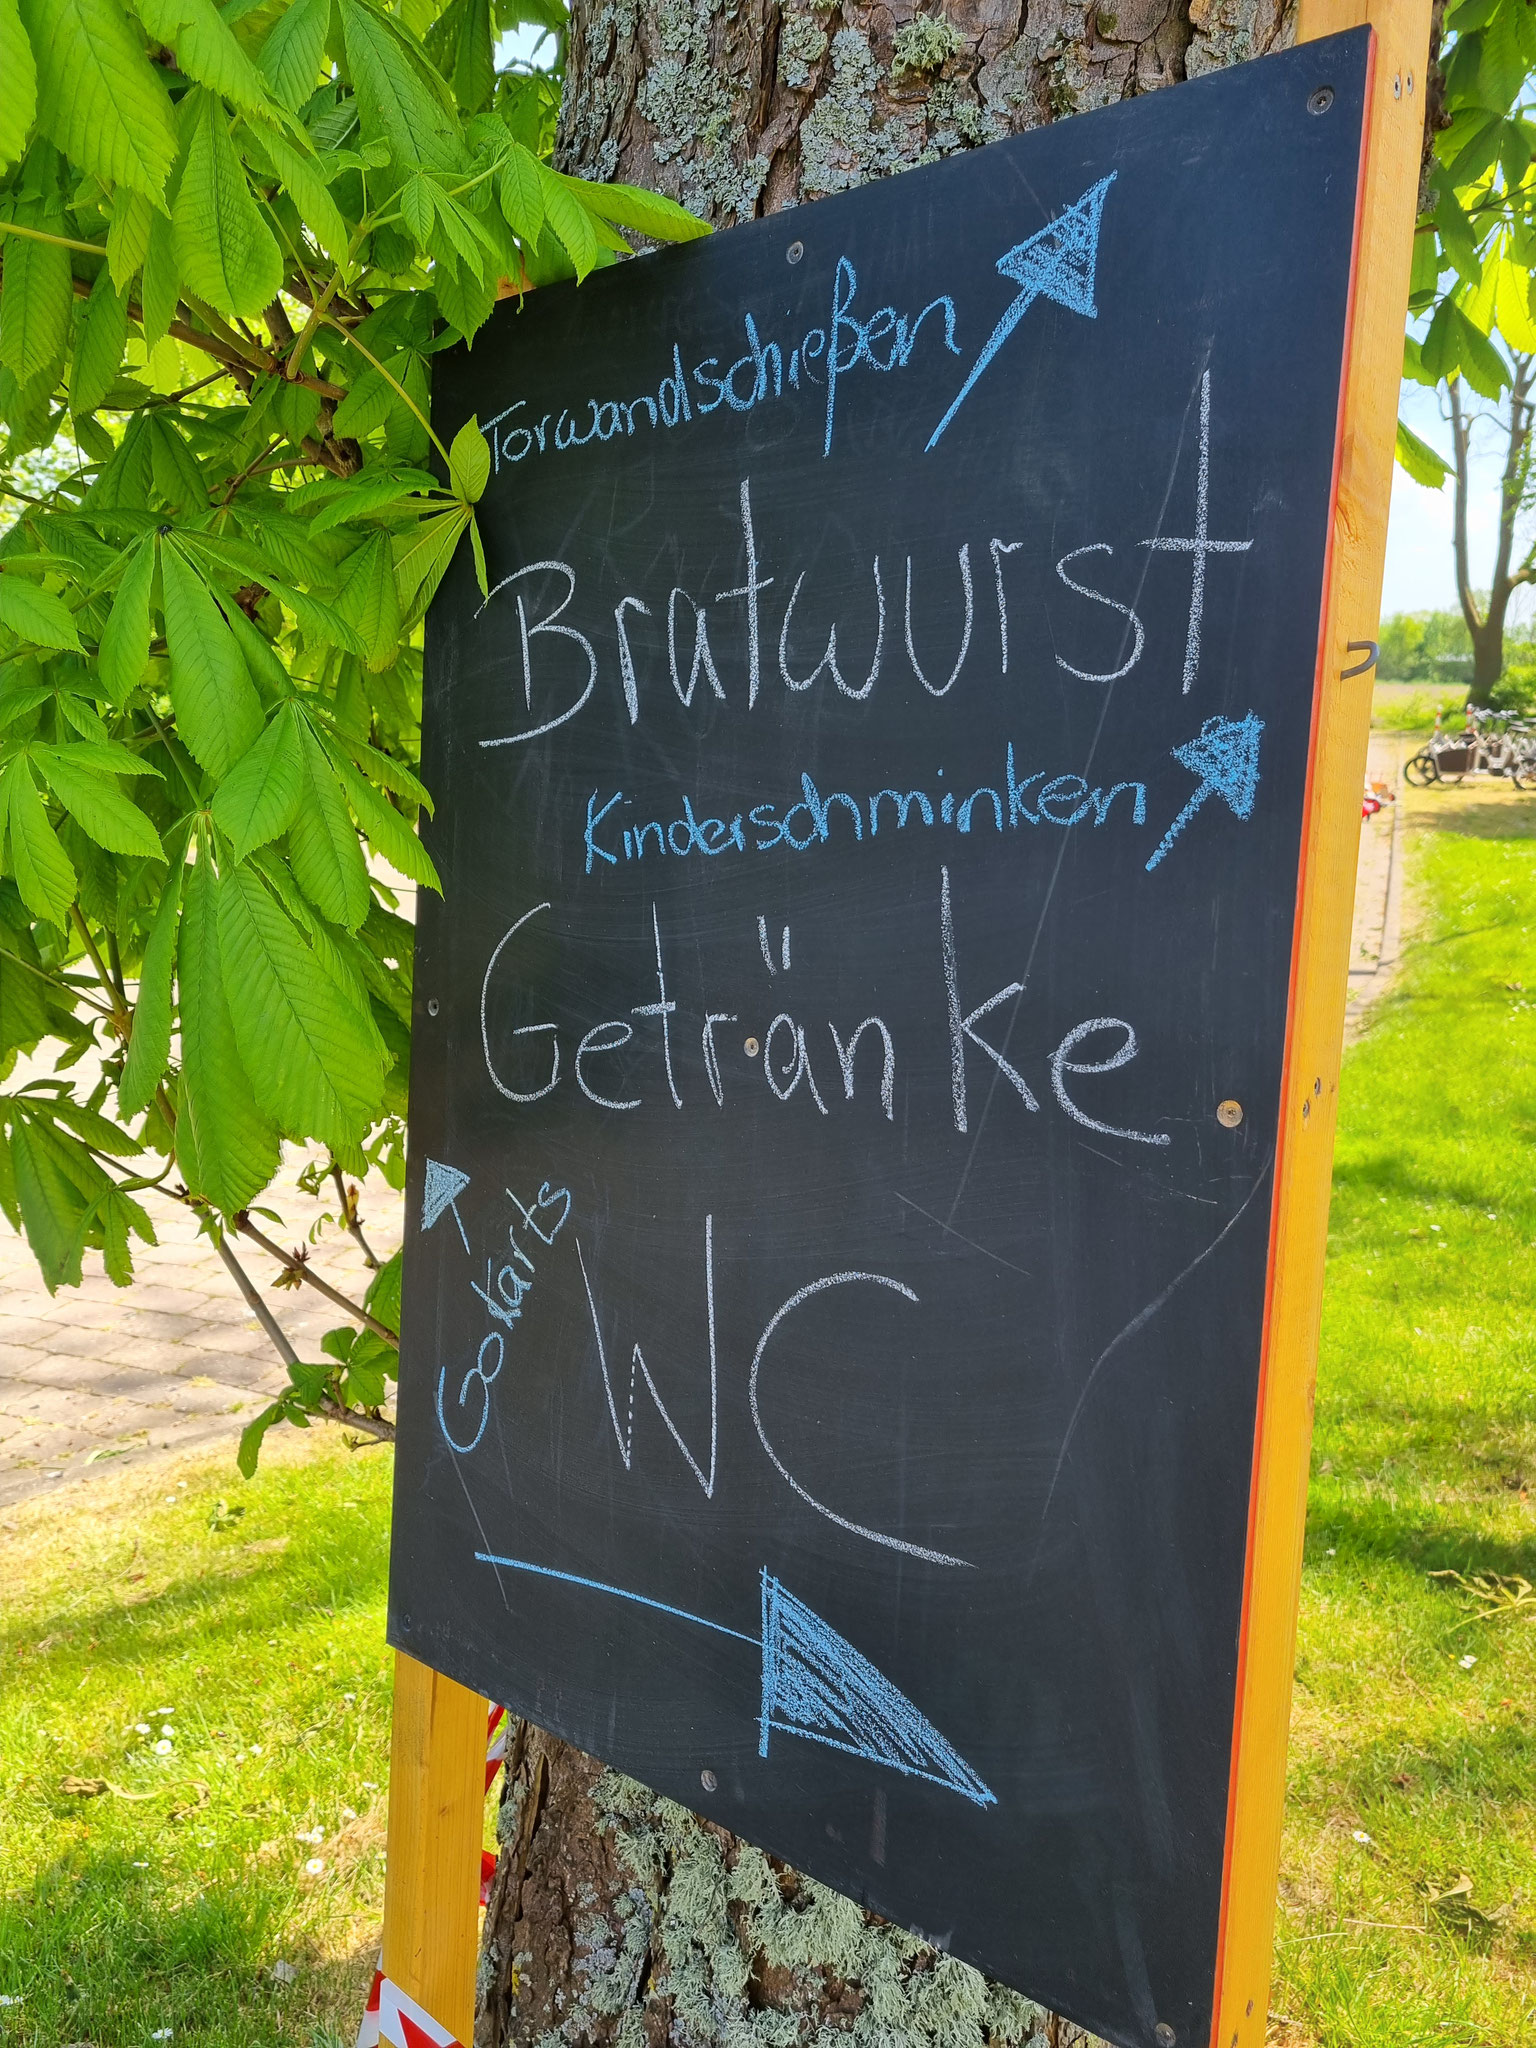 Torwandschießen
Bratwurst
Kinderschminken
Getränke
Gokarts
WC